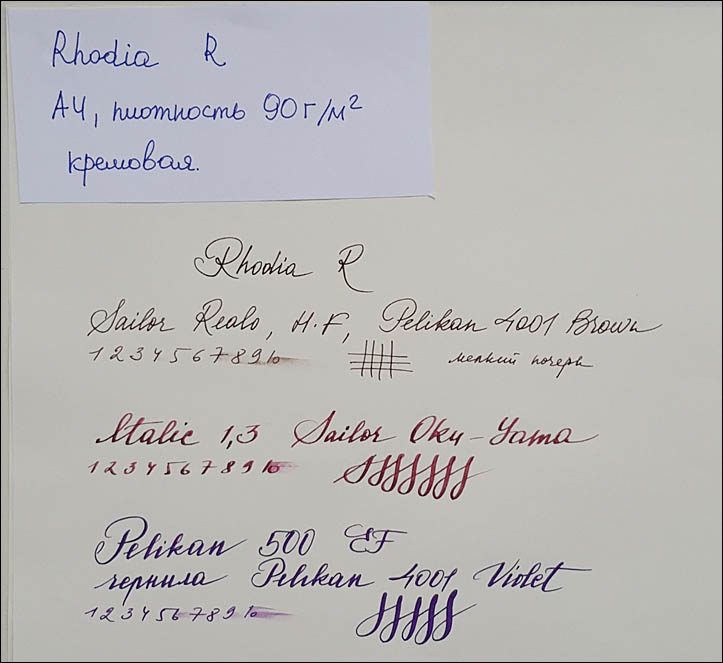 Rhodia R
А4, плотность 90 г/м²
кремовая.
Rhodia R
Sailor Realo, H.F, Pelikan 4001 Brown
1 2 3 4 5 6 7 8 9 10
мелкий почерк
Italic 1,3 Sailor Oku-Yama
1 2 3 4 5 6 7 8 9 10
Pelikan 500 EF
чернила Pelikan 4001 Violet
1 2 3 4 5 6 7 8 9 10